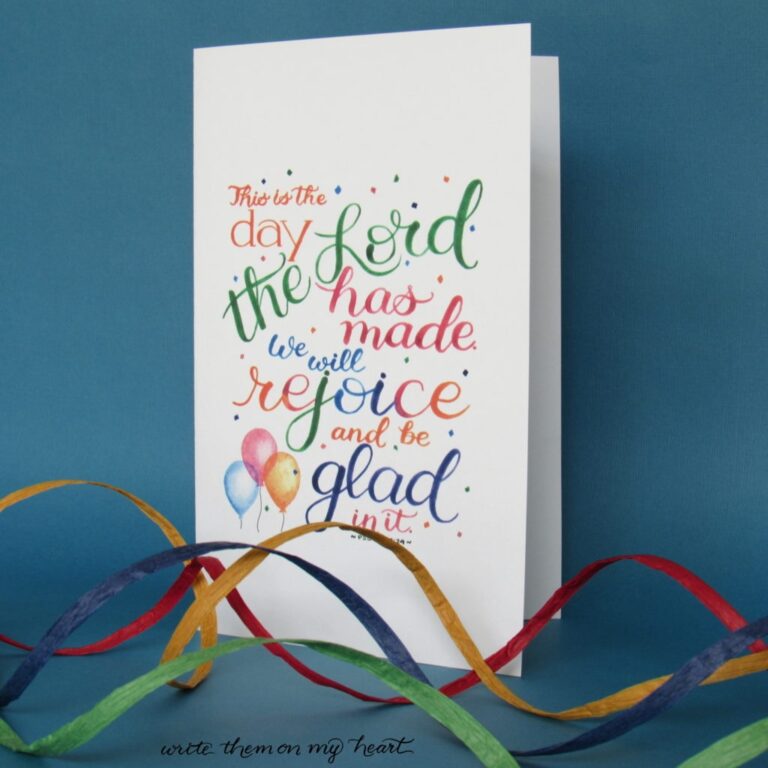 This is the
day Lord
the has
made.
We will
rejoice
and be
glad
in it.
write them on my heart